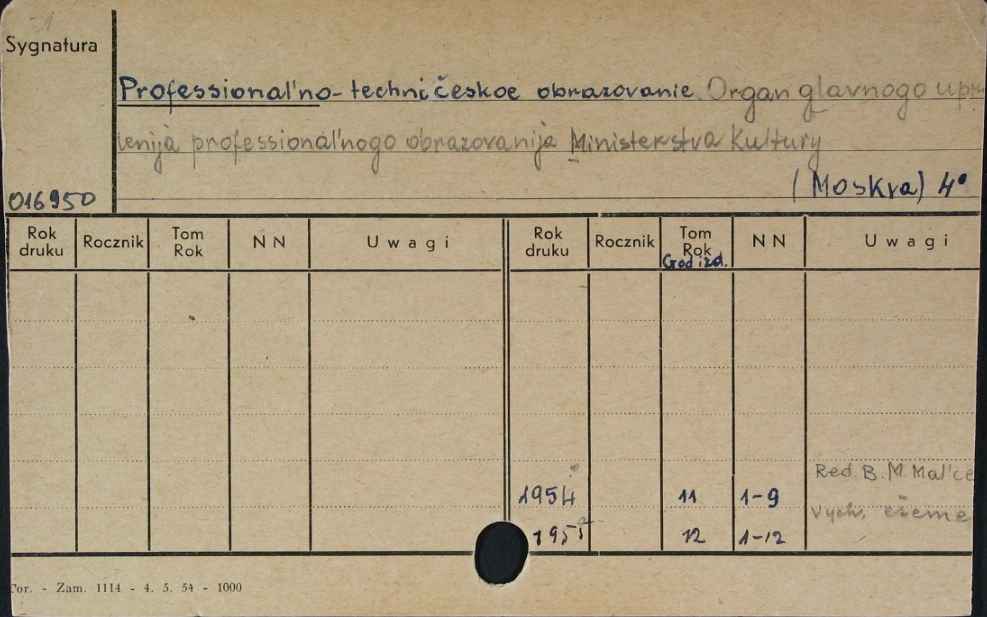 Sygnatura
Professional'no-techničeskoe obrazovanie. Organ glavnogo upr
lenija professional'nogo obrazovanija Ministerstva Kultury
(Moskva) 4°
016950
Rok druku Rocznik Tom Rok NN Uwagi Rok druku Rocznik Tom Rok God izd. NN Uwagi
Red. B. M. Mal'ce
1954 11 1-9
Vych. ežeme
1955 12 1-12
Tor. - Zam. 1114 - 4. 5. 54 - 1000